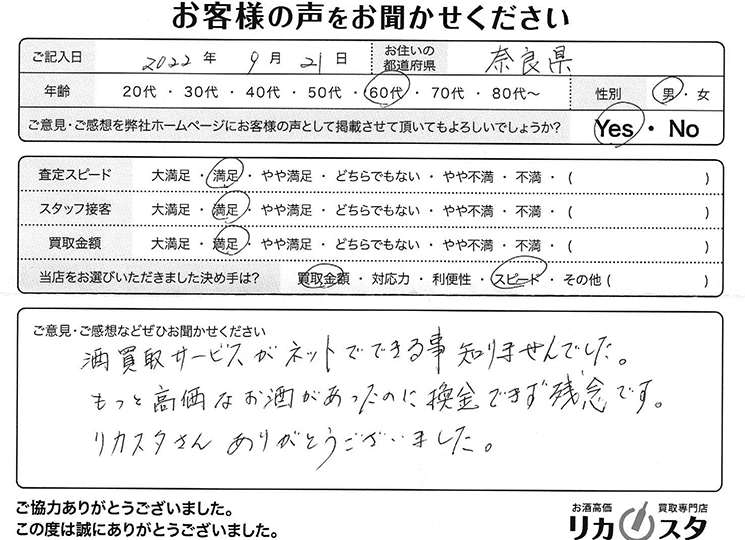 お客様の声をお聞かせください
ご記入日 2022 年 9 月 21 日 お住いの都道府県 奈良県
年齢 20代 ・ 30代 ・ 40代 ・ 50代 ・ 60代 ・ 70代 ・ 80代～ 性別 男 ・ 女
ご意見・ご感想を弊社ホームページにお客様の声として掲載させて頂いてもよろしいでしょうか? Yes ・ No
査定スピード 大満足 ・ 満足 ・ やや満足 ・ どちらでもない ・ やや不満 ・ 不満 ・ ( )
スタッフ接客 大満足 ・ 満足 ・ やや満足 ・ どちらでもない ・ やや不満 ・ 不満 ・ ( )
買取金額 大満足 ・ 満足 ・ やや満足 ・ どちらでもない ・ やや不満 ・ 不満 ・ ( )
当店をお選びいただきました決め手は? 買取金額 ・ 対応力 ・ 利便性 ・ スピード ・ その他 ( )
ご意見・ご感想などぜひお聞かせください
酒買取サービスがネットでできる事知りませんでした。
もっと高価なお酒があったのに換金できず残念です。
リカスタさんありがとうございました。
ご協力ありがとうございました。
この度は誠にありがとうございました。
お酒高価 買取専門店
リカスタ